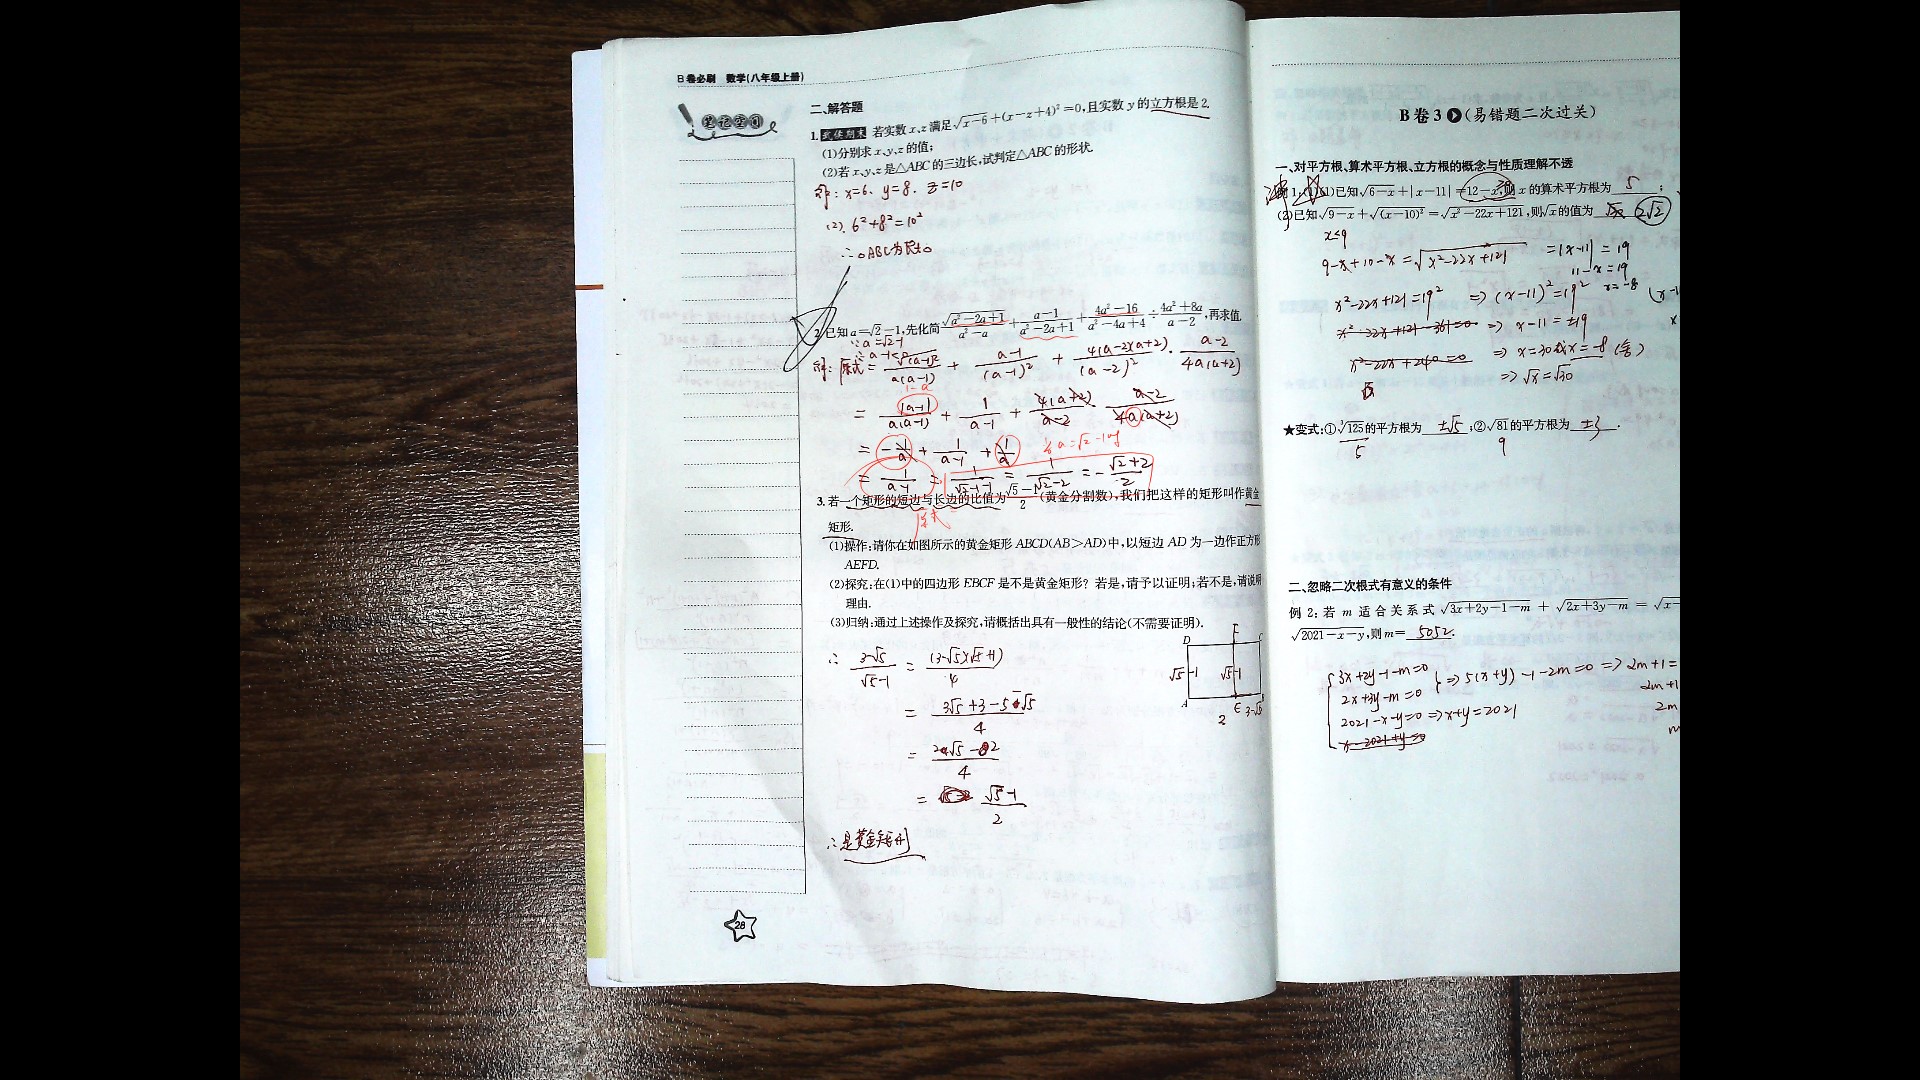 B卷必刷 数学(八年级上册)
笔记空间
二、解答题
1. 若实数x、z满足√x-6+(x-z+4)²=0,且实数y的立方根是2.
(1)分别求x、y、z的值;
(2)若x、y、z是△ABC的三边长,试判定△ABC的形状.
解: x=6、y=8、z=10
(2). 6²+8²=10²
2.已知a=√2-1,先化简√a²-2a+1/a²-a+a-1/a²-2a+1+4a²-16/a²-4a+4÷4a²+8a/a-2,再求值.
∵a=√2-1
∴a-1<0
解:原式=√(a-1)²/a(a-1) + a-1/(a-1)² + 4(a-2)(a+2)/(a-2)² · a-2/4a(a+2)
1-a
= |a-1|/a(a-1) + 1/a-1 + 4(a+2)/a-2 · a-2/4a(a+2)
= -1/a + 1/a-1 + 1/a
当a=√2-1时
= 1/a-1 = 1/√2-1-1 = 1/√2-2 = -√2+2/2
原式
3.若一个矩形的短边与长边的比值为√5-1/2(黄金分割数),我们把这样的矩形叫作黄金
矩形.
(1)操作:请你在如图所示的黄金矩形ABCD(AB>AD)中,以短边AD为一边作正方形
AEFD.
(2)探究:在(1)中的四边形EBCF是不是黄金矩形?若是,请予以证明;若不是,请说明
理由.
(3)归纳:通过上述操作及探究,请概括出具有一般性的结论(不需要证明).
D F
√5-1 √5-1
A E
2
∴ 3-√5/√5-1 = (3-√5)(√5+1)/4
= 3√5+3-5-√5/4
= 2√5-2/4
= √5-1/2
∴是黄金矩形
28
B卷3(易错题二次过关)
一、对平方根、算术平方根、立方根的概念与性质理解不透
例1:(1)已知√6-x+|x-11|=12-x,则x的算术平方根为 5 ;
(2)已知√9-x+√(x-10)²=√x²-22x+121,则√x的值为 2√2
x<9
9-x+10-x=√x²-22x+121 =|x-11|=19
11-x=19
x=-8
x²-22x+121=19² ⇒(x-11)²=19²
x²-22x+121-361=0 ⇒ x-11=±19
x²-22x+240=0 ⇒ x=30或x=-8(舍)
⇒√x=√30
★变式:①³√125的平方根为 ±√5 ;②√81的平方根为 ±3 .
5 9
二、忽略二次根式有意义的条件
例2:若m适合关系式√3x+2y-1-m+√2x+3y-m=√x-
√2021-x-y,则m= 5052.
3x+2y-1-m=0
2x+3y-m=0 ⇒5(x+y)-1-2m=0 ⇒2m+1=
2021-x-y=0⇒x+y=2021
x-2021+y=0
2m+1
2m
m